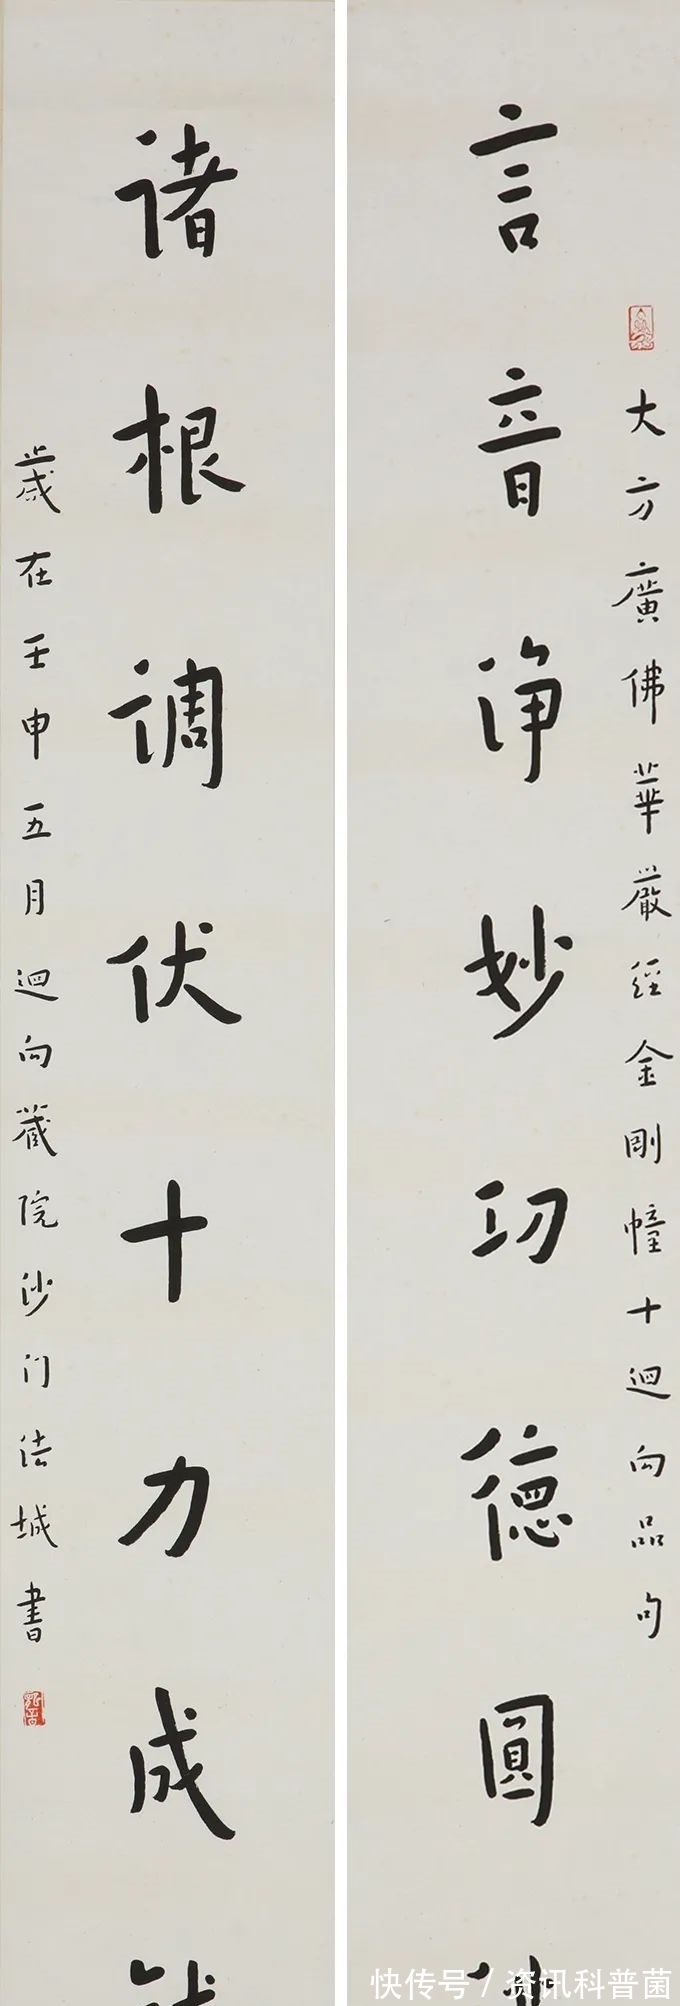 大方廣佛華嚴經金剛幢十迴向品句
言音净妙功德圓
诸根调伏十力成
歲在壬申五月迴向藏院沙门法城書
快传号 / 资讯科普菌